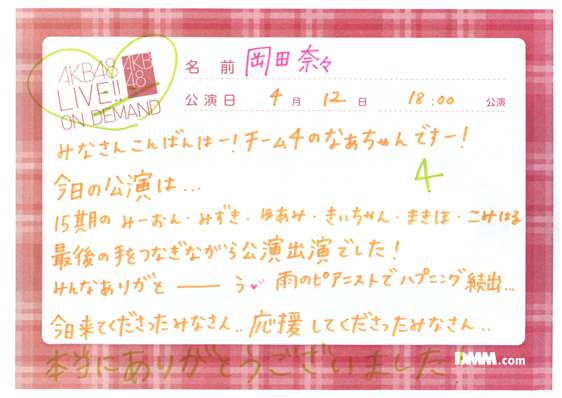 AKB48
LIVE!!
ON DEMAND
AKB
48
名前 岡田奈々
公演日 4月12日 18:00 公演
みなさんこんばんはー!チーム4のなぁちゃんですー!
4
今日の公演は...
15期の みーおん・みずき・ゆあみ・きぃちゃん・まきほ・こみはる
最後の手をつなぎながら公演出演でした!
みんなありがとーう 雨のピアニストでハプニング続出...
今日来てくださったみなさん..応援してくださったみなさん..
本当にありがとうございました!
DMM.com